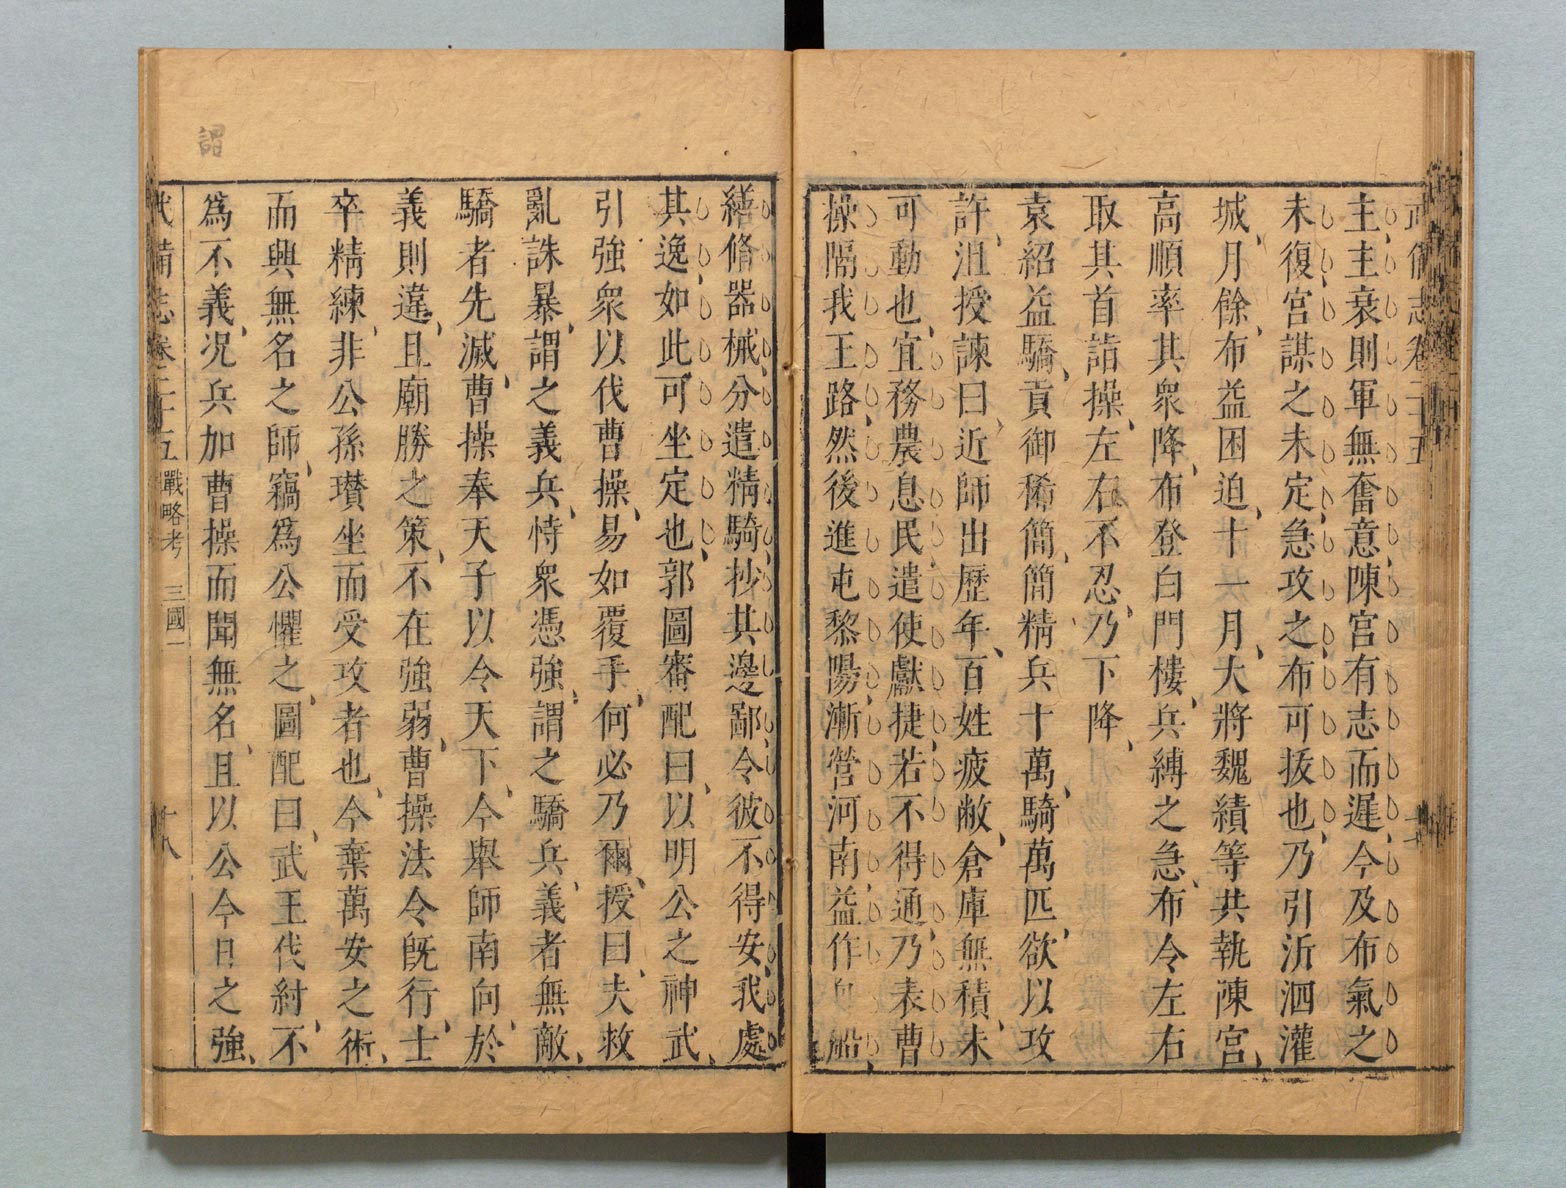 主主衰則軍無奮意陳宮有志而遲今及布氣之
未復宮謀之未定急攻之布可拔也乃引沂泗灌
城月餘布益困迫十一月大將魏續等共執陳宮
高順率其衆降布登白門樓兵縛之急布令左右
取其首詣操左右不忍乃下降
袁紹益驕貢御稀簡簡精兵十萬騎萬匹欲以攻
許沮授諫曰近師出歷年百姓疲敝倉庫無積未
可動也宜務農息民遣使獻捷若不得通乃表曹
操隔我王路然後進屯黎陽漸營河南益作舟船
繕脩器械分遣精騎抄其邊鄙令彼不得安我處
其逸如此可坐定也郭圖審配曰以明公之神武
引強衆以伐曹操易如覆手何必乃爾授曰夫救
亂誅暴謂之義兵恃衆憑強謂之驕兵義者無敵
驕者先滅曹操奉天子以令天下今舉師南向於
義則違且廟勝之策不在強弱曹操法令既行士
卒精練非公孫瓚坐而受攻者也今棄萬安之術
而興無名之師竊爲公懼之圖配曰武王伐紂不
爲不義況兵加曹操而聞無名且以公今日之強
武備志卷二十五 戰略考 三國一 十八
詔